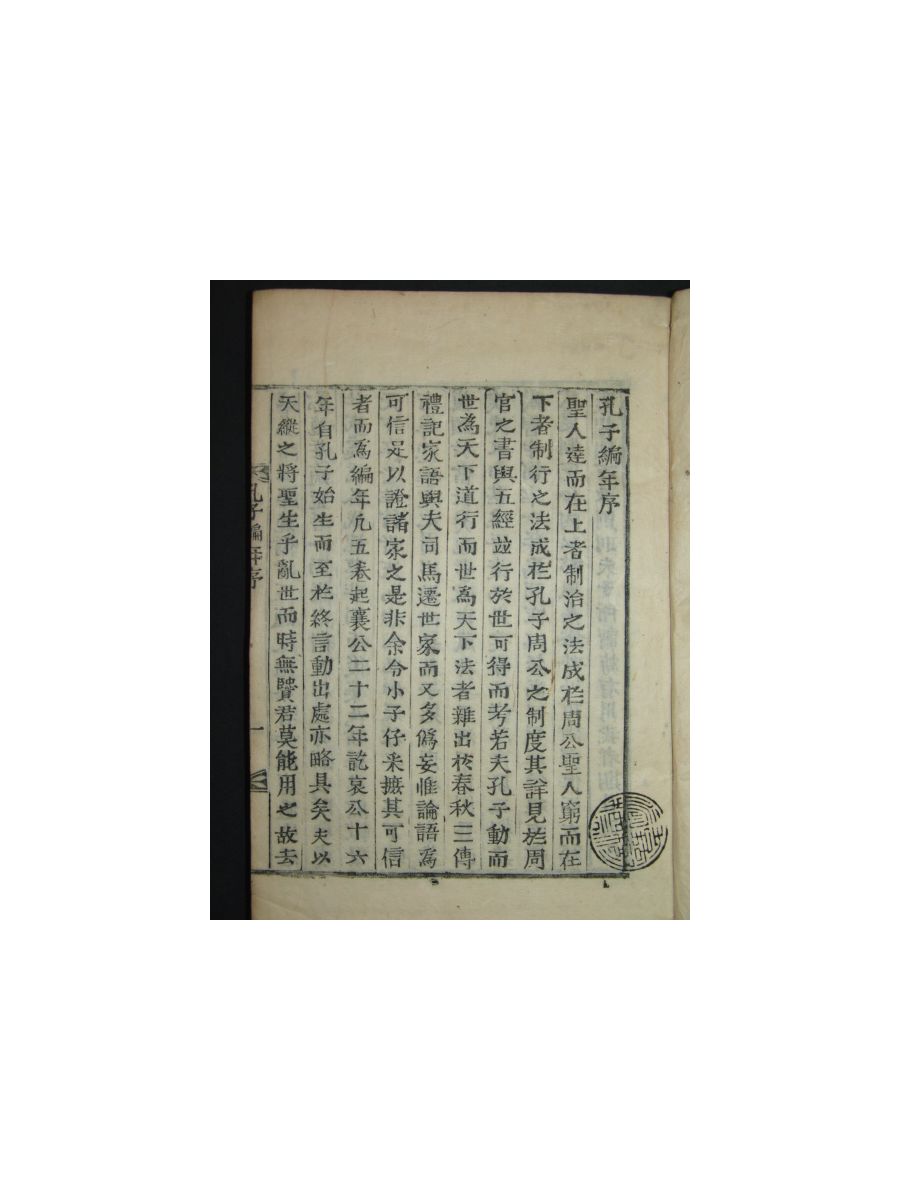 孔子編年序
聖人達而在上者制治之法成於周公聖人窮而在
下者制行之法成於孔子周公之制度其詳見於周
官之書與五經並行於世可得而考若夫孔子動而
世為天下道行而世為天下法者雜出於春秋三傳
禮記家語與夫司馬遷世家而又多僞妄惟論語為
可信足以證諸家之是非余令小子仔采摭其可信
者而為編年凡五卷起襄公二十二年訖哀公十六
年自孔子始生而至於終言動出處亦略具矣夫以
天縱之將聖生乎亂世而時無賢君莫能用之故去
孔子編年序
一